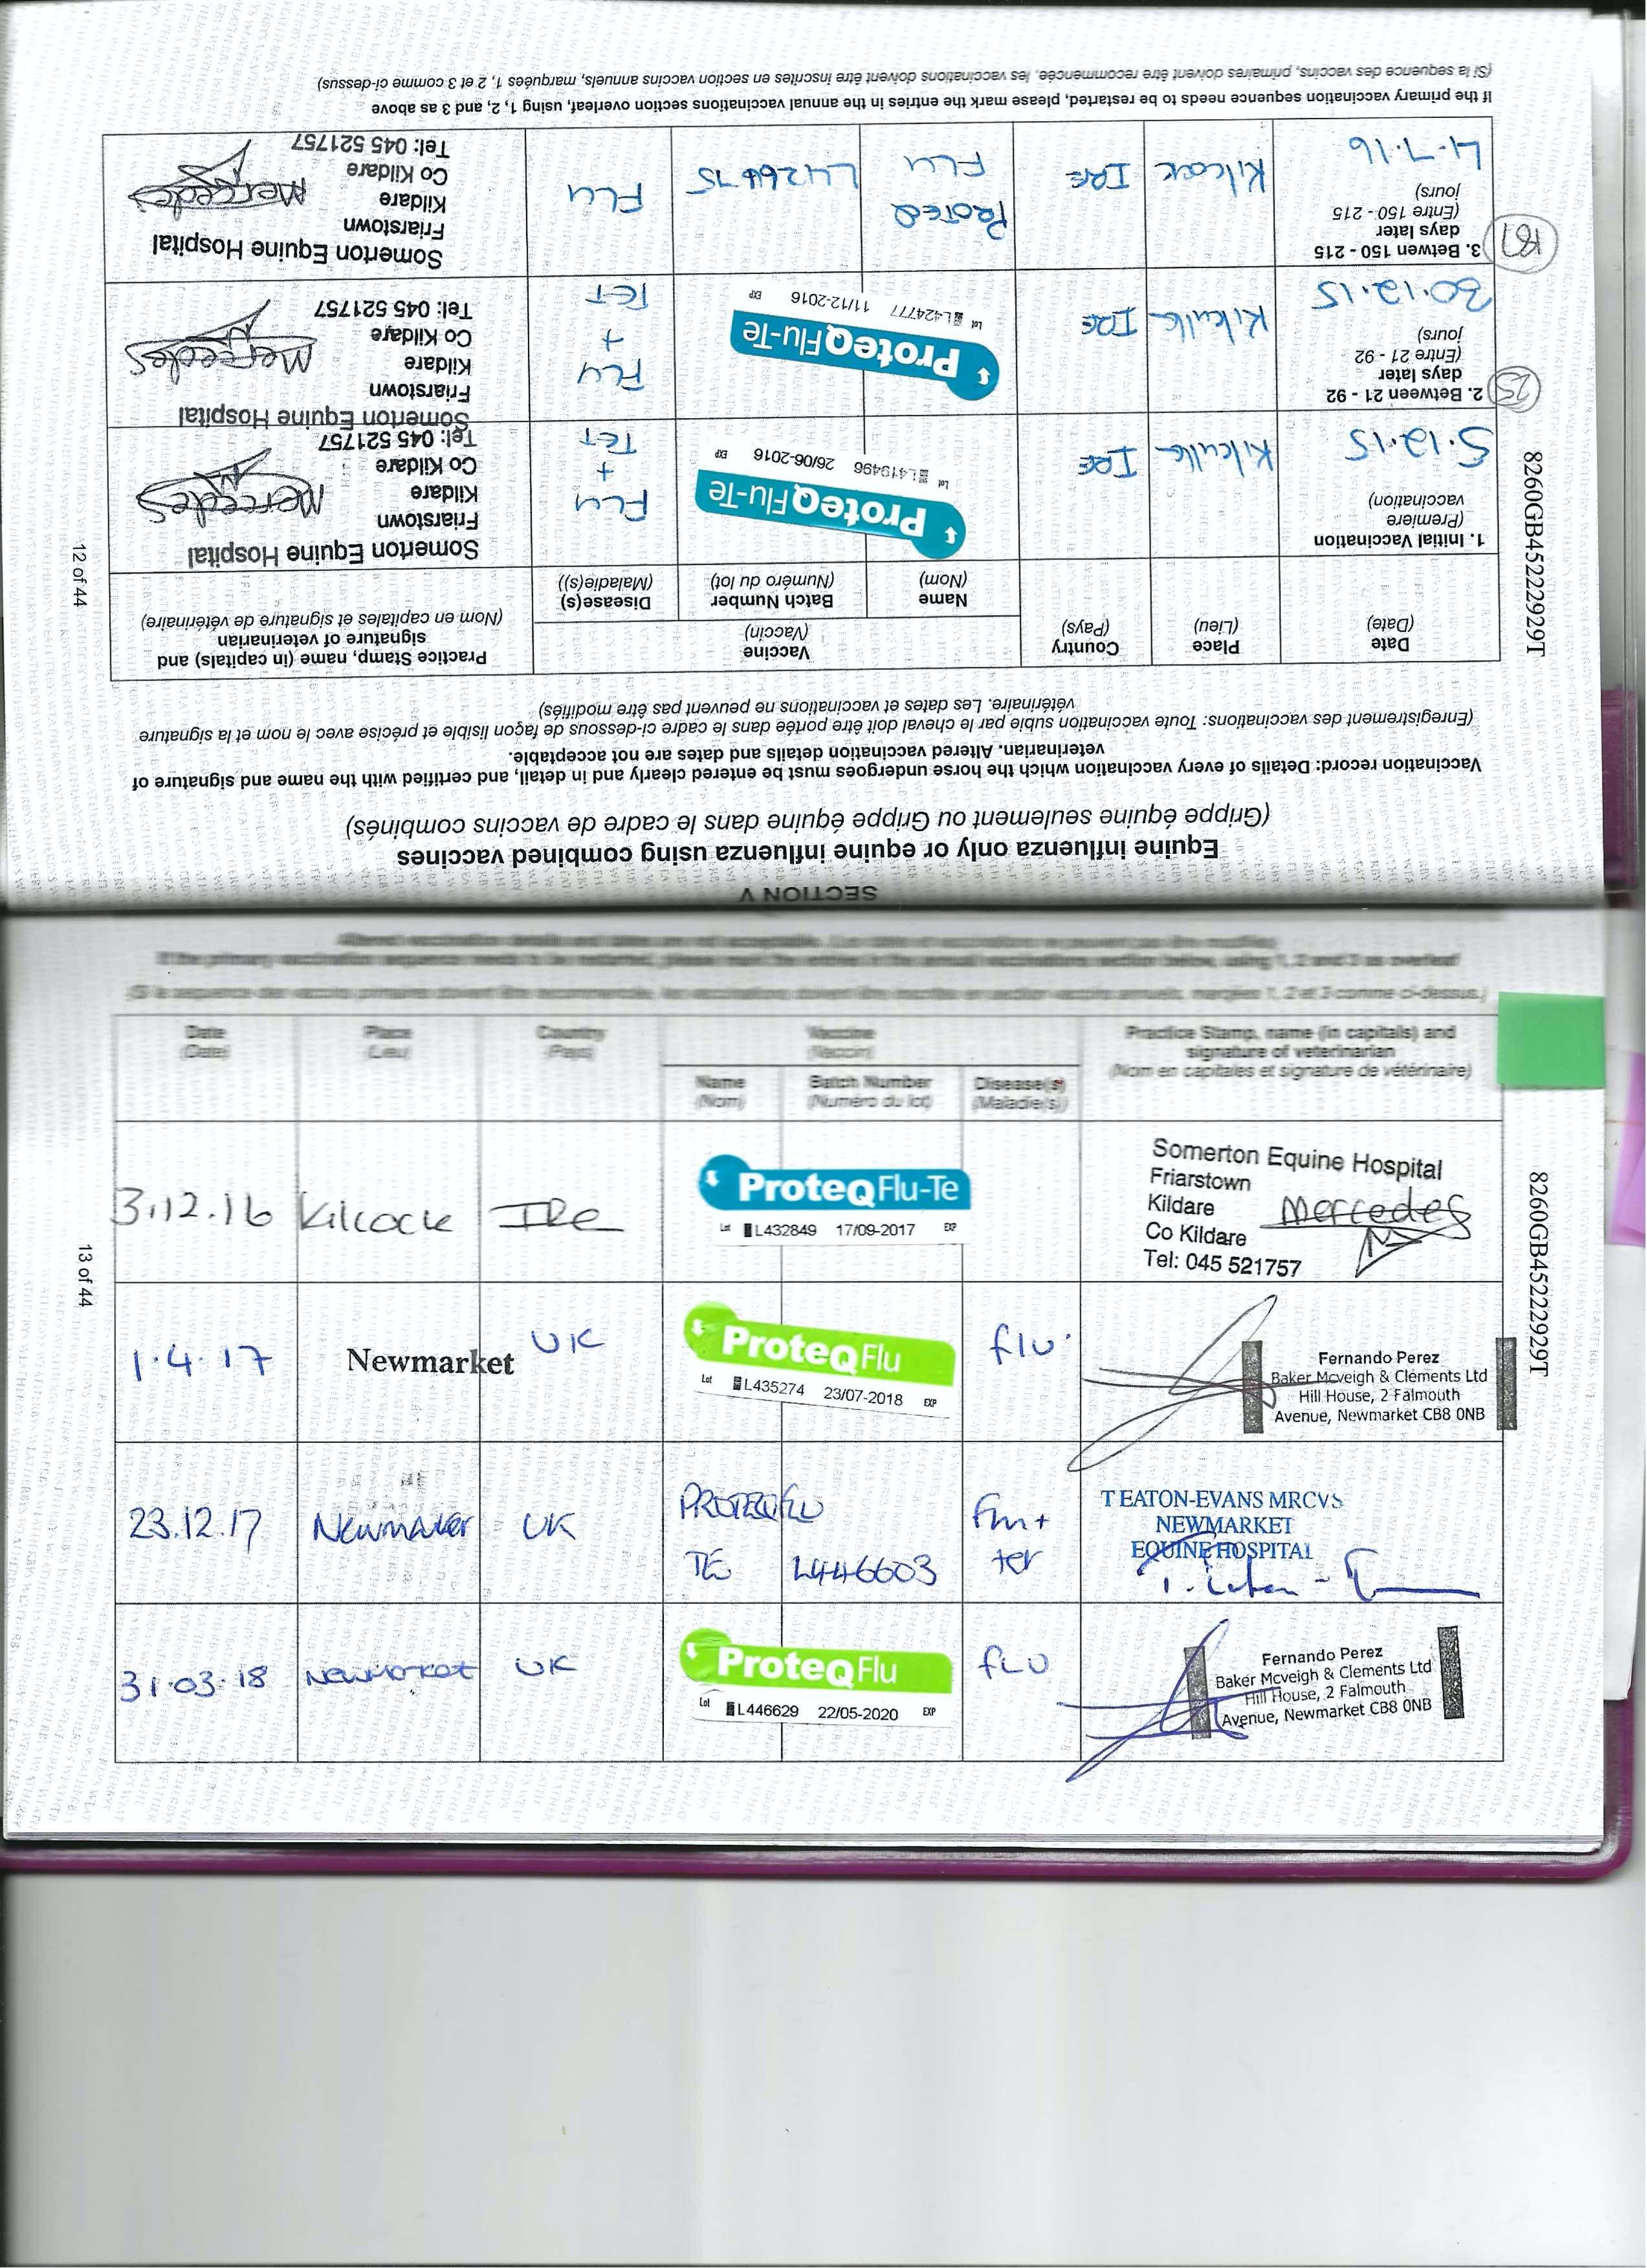 SECTION V
Equine influenza only or equine influenza using combined vaccines
(Grippe équine seulement ou Grippe équine dans le cadre de vaccins combinés)
Vaccination record: Details of every vaccination which the horse undergoes must be entered clearly and in detail, and certified with the name and signature of
veterinarian. Altered vaccination details and dates are not acceptable.
(Enregistrement des vaccinations: Toute vaccination subie par le cheval doit être portée dans le cadre ci-dessous de façon lisible et précise avec le nom et la signature
vétérinaire. Les dates et vaccinations ne peuvent pas être modifiés)
Date
(Date)
Place
(Lieu)
Country
(Pays)
Vaccine
(Vaccin)
Name
(Nom)
Batch Number
(Numéro du lot)
Disease(s)
(Maladie(s))
Practice Stamp, name (in capitals) and
signature of veterinarian
(Nom en capitales et signature de vétérinaire)
1. Initial Vaccination
(Premiere
vaccination)
5.12.15
Kilcullen
IRE
ProteqFlu-Te
Lot L419496 26/06-2016 EXP
FLU
+
TET
Somerton Equine Hospital
Friarstown
Kildare
Co Kildare
Tel: 045 521757
Mercedes
25
2. Between 21 - 92
days later
(Entre 21 - 92
jours)
30.12.15
Kilcullen
IRE
ProteqFlu-Te
Lot L424777 11/12-2016 EXP
FLU
+
TET
Somerton Equine Hospital
Friarstown
Kildare
Co Kildare
Tel: 045 521757
Mercedes
187
3. Betwen 150 - 215
days later
(Entre 150- 215
jours)
4.7.16
Kilcock
IRE
PROTEQ
FLU
FLU
Somerton Equine Hospital
Friarstown
Kildare
Co Kildare
Tel: 045 521757
Mercedes
If the primary vaccination sequence needs to be restarted, please mark the entries in the annual vaccinations section overleaf, using 1, 2, and 3 as above
(Si la sequence des vaccins, primaires doivent être recommencée, les vaccinations doivent être inscrites en section vaccins annuels, marquées 1, 2 et 3 comme ci-dessus)
8260GB45222929T
12 of 44
Altered vaccination details and dates are not acceptable.
If the primary vaccination sequence needs to be restarted, please mark the entries in the annual vaccinations section below, using 1, 2 and 3 as overleaf
(Si la sequence des vaccins primaires doivent être recommencée, les vaccinations doivent être inscrites en section vaccins annuels, marquées 1, 2 et 3 comme ci-dessus.)
Date
(Date)
Place
(Lieu)
Country
(Pays)
Vaccine
(Vaccin)
Name
(Nom)
Batch Number
(Numéro du lot)
Disease(s)
(Maladie(s))
Practice Stamp, name (in capitals) and
signature of veterinarian
(Nom en capitales et signature de vétérinaire)
3.12.16
Kilcock
IRe
ProteqFlu-Te
Lot L432849 17/09-2017 EXP
Somerton Equine Hospital
Friarstown
Kildare
Co Kildare
Tel: 045 521757
Mercedes
1.4.17
Newmarket
UK
ProteqFlu
Lot L435274 23/07-2018 EXP
flu.
Fernando Perez
Baker Mcveigh & Clements Ltd
Hill House, 2 Falmouth
Avenue, Newmarket CB8 0NB
23.12.17
Newmarket
UK
PROTEQFLU
TE L446603
Flu+
tet
T EATON-EVANS MRCVS
NEWMARKET
EQUINE HOSPITAL
31.03.18
Newmarket
UK
ProteqFlu
Lot L446629 22/05-2020 EXP
FLU
Fernando Perez
Baker Mcveigh & Clements Ltd
Hill House, 2 Falmouth
Avenue, Newmarket CB8 0NB
8260GB45222929T
13 of 44